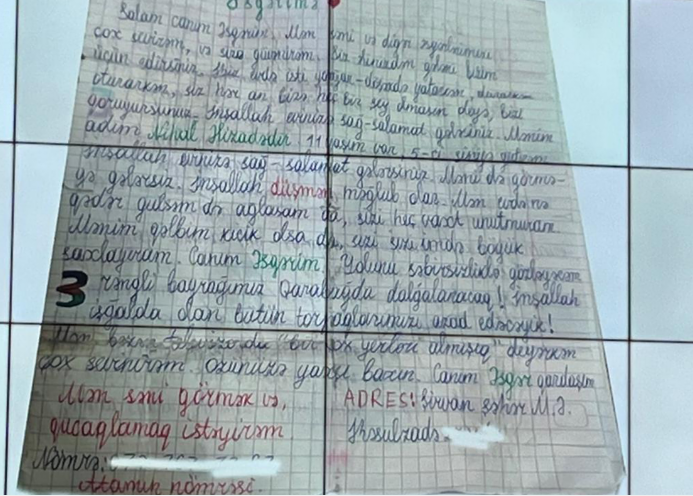 Əsgərimə
Salam canım Əsgərim. Mən səni və digər
çox sevirəm, və sizə güvənirəm. Siz hər
üçün edirsiniz. Biz evdə isti yorğan-döşəkdə yatarkən,
oturarkən, siz hər an bizə heç bir şey olmasın deyə, bizi
qoruyursunuz. İnşallah evinizə sağ-salamat gələrsiniz. Mənim
adım Nihal Əlizadədir. 11 yaşım var, 5-ci sinifə gedirəm
İnşallah evinizə sağ-salamat gələrsiniz. Məni də görmə-
yə gələrsiz. İnşallah düşmən məğlub olar. Mən evdə nə
qədər gülsəm də ağlasam da, sizi heç vaxt unutmuram
Mənim qəlbim kiçik olsa da, sizi
saxlayıram. Canım Əsgərim. Yolunu səbirsizliklə gözləyirəm
3 rəngli bayrağımız Qarabağda dalğalanacaq! İnşallah
işğalda olan bütün torpaqlarımızı azad edəcəyik!
Mən "bir çox yerləri almışıq" deyərkən
çox sevinirəm. Özünüzə yaxşı baxın. Canım Əsgər qardaşım
Mən səni görmək və,
qucaqlamaq istəyirəm
ADRES: Şirvan şəhər M.Ə.
Rəsulzadə
Nömrə:
Atamın nömrəsi.